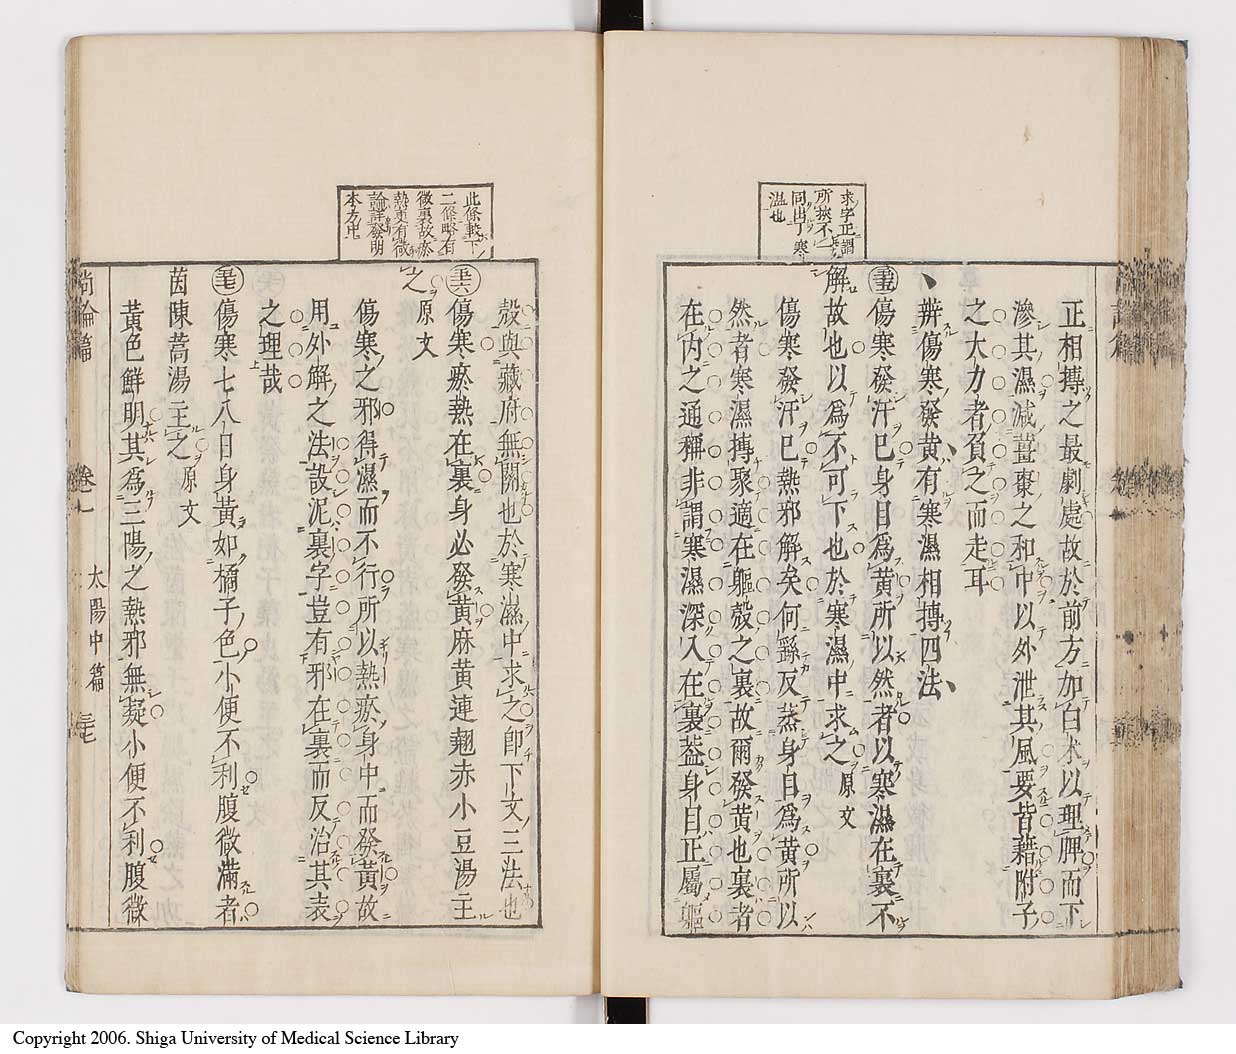 求字正謂
所挾不
同出了寒
濕也
正相搏之最劇處故於前方加白朮以理脾而下
滲其濕減薑棗之和中以外泄其風要皆藉附子
之大力者負之而走耳
辨傷寒發黃有寒濕相搏四法
五五傷寒發汗已身目爲黃所以然者以寒濕在裏不
解故也以爲不可下也於寒濕中求之 原文
傷寒發汗已熱邪解矣何繇反蒸身目爲黃所以
然者寒濕搏聚適在軀殼之裏故爾發黃也裏者
在內之通稱非謂寒濕深入在裏葢身目正屬軀
此條較下
二條略有
微裏故瘀
熱更有微
論詳發明
本方下
殼與藏府無關也於寒濕中求之卽下文三法也
五六傷寒瘀熱在裏身必發黃麻黃連翹赤小豆湯主
之 原文
傷寒之邪得濕而不行所以熱瘀身中而發黃故
用外解之法設泥裏字豈有邪在裏而反治其表
之理哉
五七傷寒七八日身黃如橘子色小便不利腹微滿者
茵陳蒿湯主之 原文
黃色鮮明其爲三陽之熱邪無疑小便不利腹微
尚論篇 卷七 太陽中篇 三七
Copyright 2006. Shiga University of Medical Science Library